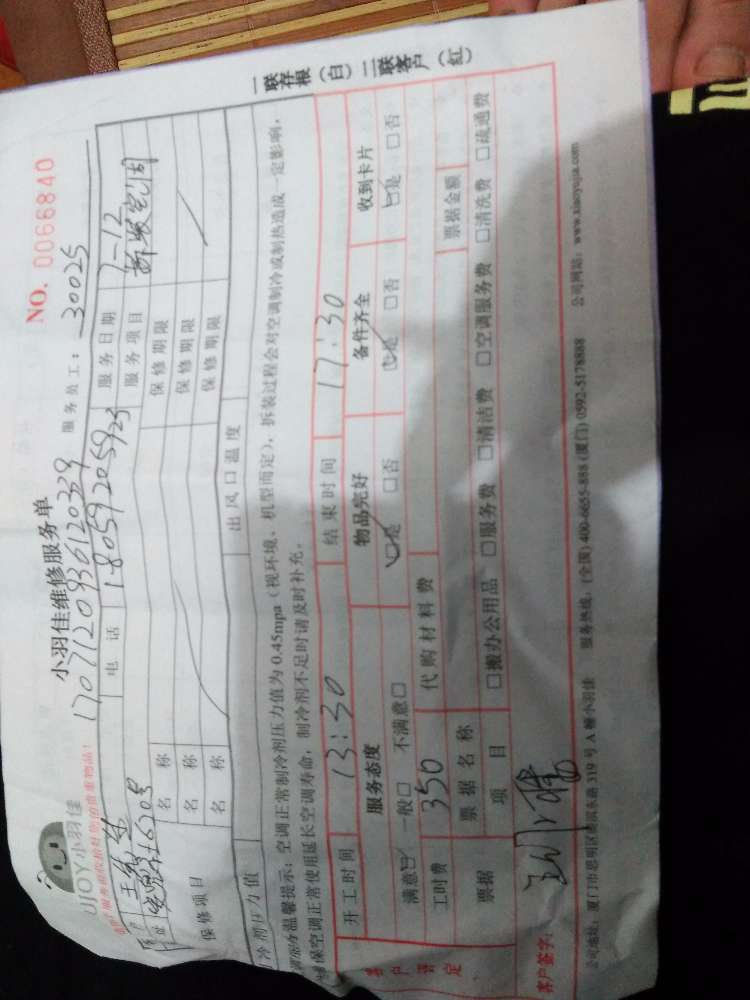 UJOY小羽佳
小羽佳维修服务单
NO. 0066840
1707120936120339
服务员工: 30025
电话 18059205923
服务日期 7-12
服务项目 拆装空调
保修项目
名称
保修期限
名称
保修期限
名称
保修期限
冷剂压力值
出风口温度
温馨提示: 空调正常制冷剂压力值为 0.45mpa (视环境、机型而定), 拆装过程会对空调制冷或制热造成一定影响,
保空调正常使用延长空调寿命, 制冷剂不足时请及时补充。
开工时间 13:30 结束时间 17:30
服务态度 物品完好 备件齐全 收到卡片
满意□ 一般□ 不满意□ □是 □否 □是 □否 □是 □否
工时费 350 代购材料费
票据 票据名称 票据金额
项目 □搬办公用品 □服务费 □清洁费 □空调服务费 □清洗费 □疏通费
客户签字:
公司地址: 厦门市思明区 319 号 A 幢小羽佳 服务热线: (全国) 400-6655-888 (厦门) 0592-5178888 公司网站: www.xiaoyujia.com
一联存根(白) 二联客户(红)